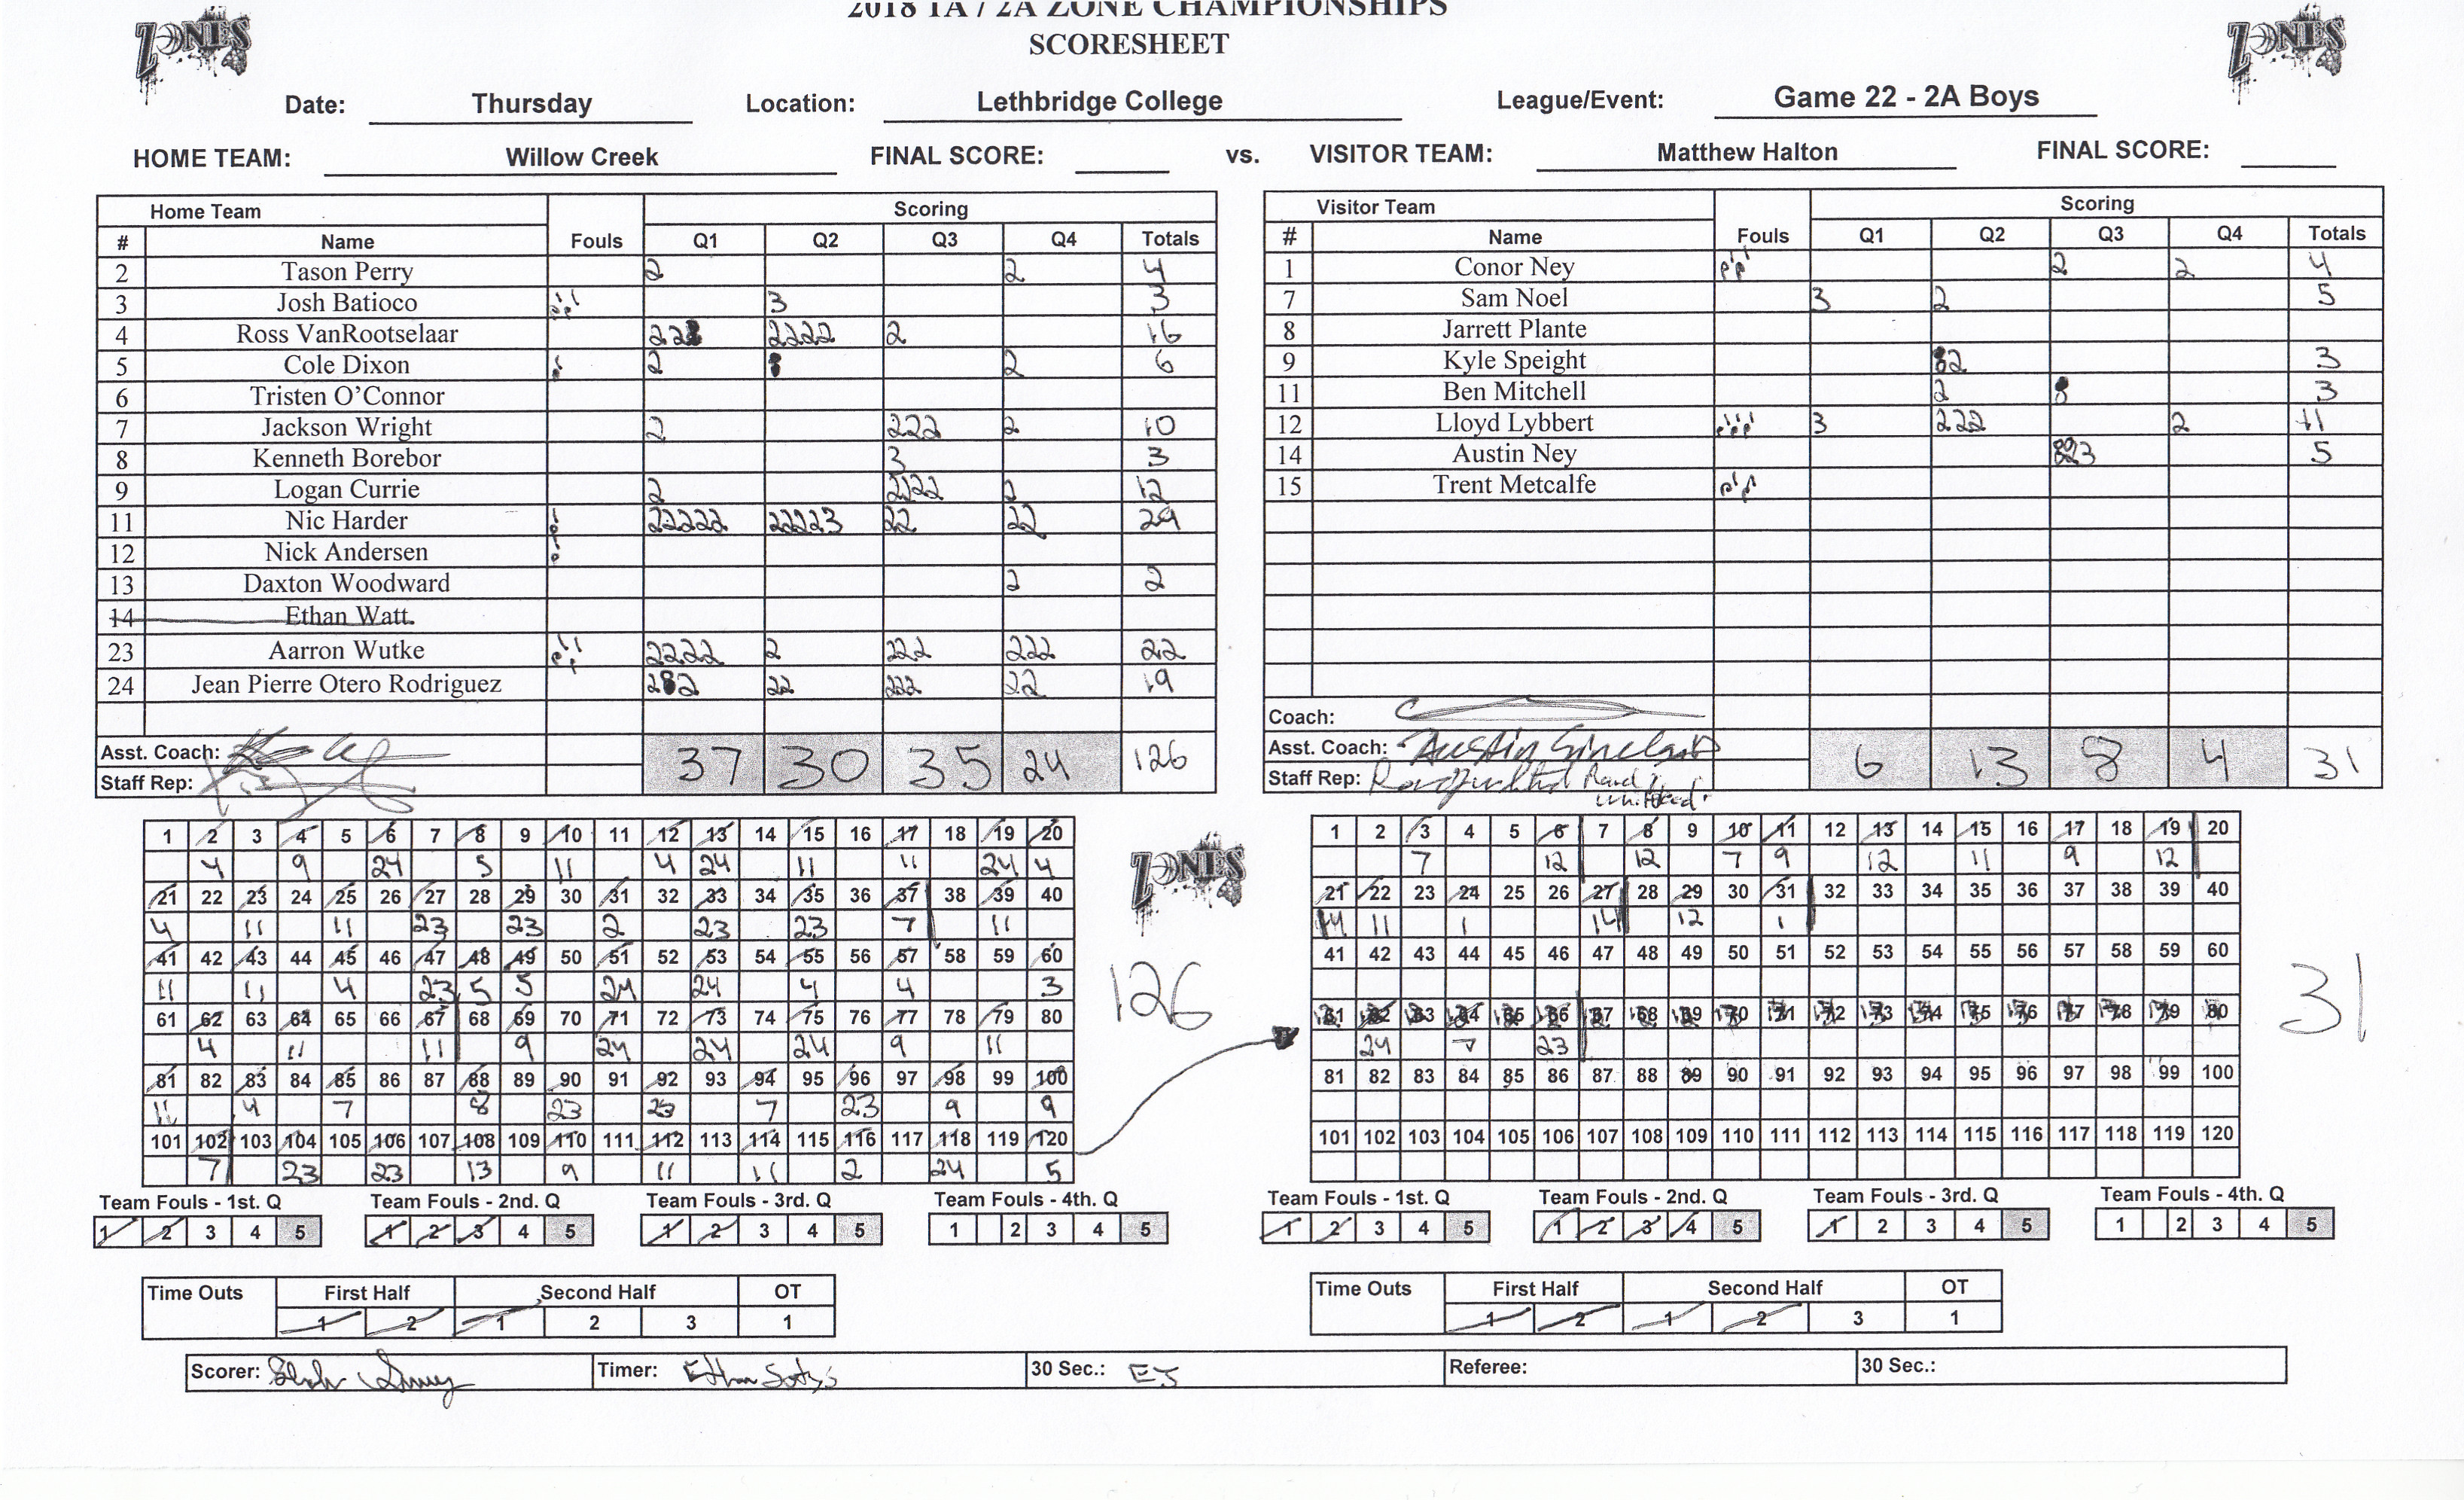 2018 1A / 2A ZONE CHAMPIONSHIPS
SCORESHEET
ZONES ZONES
Date: Thursday Location: Lethbridge College League/Event: Game 22 - 2A Boys
HOME TEAM: Willow Creek FINAL SCORE: vs. VISITOR TEAM: Matthew Halton FINAL SCORE:
Home Team Scoring
# Name Fouls Q1 Q2 Q3 Q4 Totals
2 Tason Perry 2 2 4
3 Josh Batioco 3 3
4 Ross VanRootselaar 22 2222 2 16
5 Cole Dixon 2 2 6
6 Tristen O'Connor
7 Jackson Wright 2 222 2 10
8 Kenneth Borebor 3 3
9 Logan Currie 2 2122 2 12
11 Nic Harder 22222 22223 22 22 29
12 Nick Andersen
13 Daxton Woodward 2 2
14 Ethan Watt.
23 Aarron Wutke 2222 2 222 222 22
24 Jean Pierre Otero Rodriguez 2 2 22 222 22 19
Asst. Coach: 37 30 35 24 126
Staff Rep:
Visitor Team Scoring
# Name Fouls Q1 Q2 Q3 Q4 Totals
1 Conor Ney 2 2 4
7 Sam Noel 3 2 5
8 Jarrett Plante
9 Kyle Speight 2 3
11 Ben Mitchell 2 3
12 Lloyd Lybbert 3 222 2 11
14 Austin Ney 3 5
15 Trent Metcalfe
Coach:
Asst. Coach: Austin Sinclair 6 13 8 4 31
Staff Rep:
1 2 3 4 5 6 7 8 9 10 11 12 13 14 15 16 17 18 19 20
4 9 24 5 11 4 24 11 11 24 4
21 22 23 24 25 26 27 28 29 30 31 32 33 34 35 36 37 38 39 40
4 11 11 23 23 2 23 23 7 11
41 42 43 44 45 46 47 48 49 50 51 52 53 54 55 56 57 58 59 60
11 11 4 23 5 5 24 24 4 4 3
61 62 63 64 65 66 67 68 69 70 71 72 73 74 75 76 77 78 79 80
4 11 11 9 24 24 24 9 11
81 82 83 84 85 86 87 88 89 90 91 92 93 94 95 96 97 98 99 100
11 4 7 8 23 23 7 23 9 9
101 102 103 104 105 106 107 108 109 110 111 112 113 114 115 116 117 118 119 120
7 23 23 13 9 11 11 2 24 5
ZONES
126
1 2 3 4 5 6 7 8 9 10 11 12 13 14 15 16 17 18 19 20
7 12 12 7 9 12 11 9 12
21 22 23 24 25 26 27 28 29 30 31 32 33 34 35 36 37 38 39 40
14 11 1 14 12 1
41 42 43 44 45 46 47 48 49 50 51 52 53 54 55 56 57 58 59 60
24 7 23
81 82 83 84 85 86 87 88 89 90 91 92 93 94 95 96 97 98 99 100
101 102 103 104 105 106 107 108 109 110 111 112 113 114 115 116 117 118 119 120
31
Team Fouls - 1st. Q Team Fouls - 2nd. Q Team Fouls - 3rd. Q Team Fouls - 4th. Q
1 2 3 4 5 1 2 3 4 5 1 2 3 4 5 1 2 3 4 5
Team Fouls - 1st. Q Team Fouls - 2nd. Q Team Fouls - 3rd. Q Team Fouls - 4th. Q
1 2 3 4 5 1 2 3 4 5 1 2 3 4 5 1 2 3 4 5
Time Outs First Half Second Half OT
1 2 1 2 3 1
Time Outs First Half Second Half OT
1 2 1 2 3 1
Scorer: Timer: Ethan 30 Sec.: ES Referee: 30 Sec.: